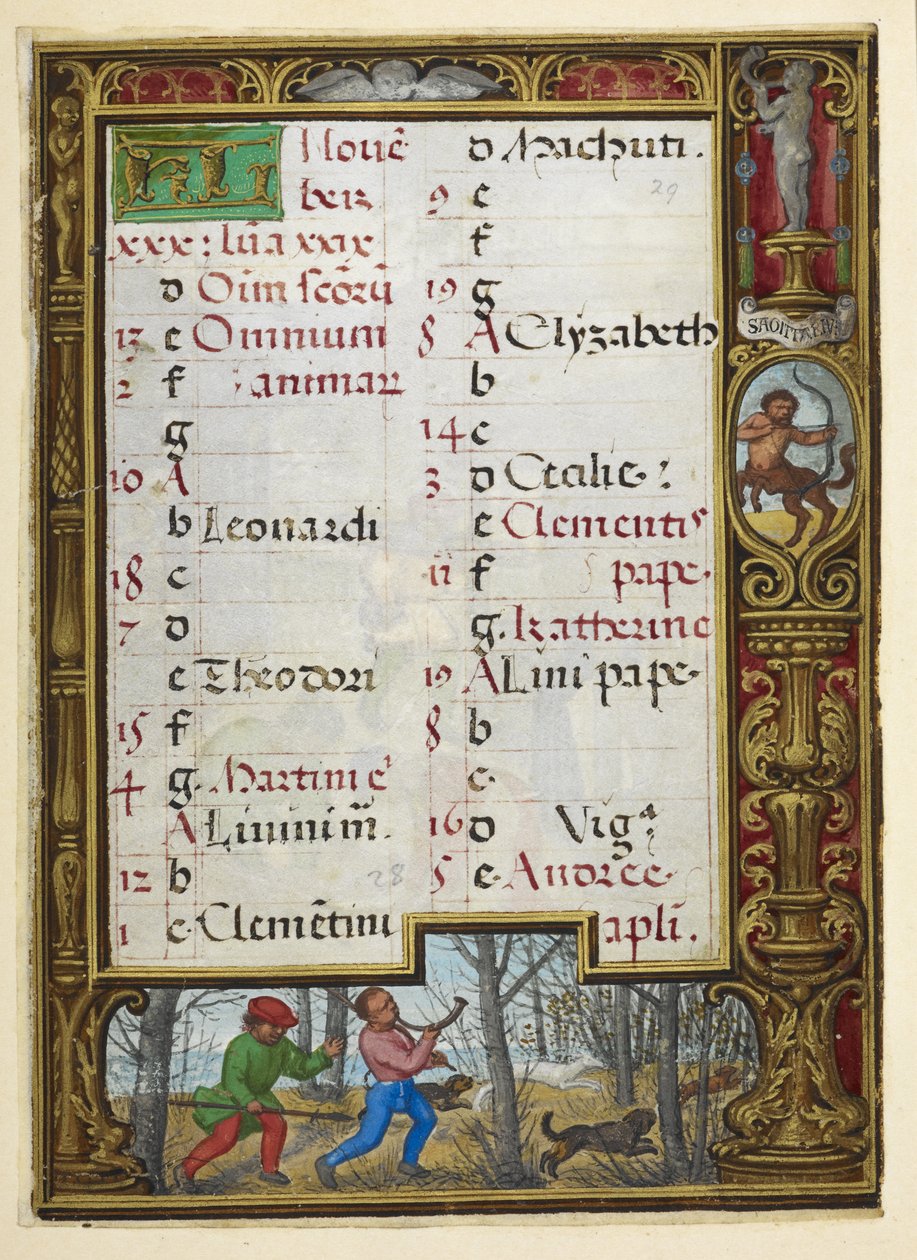 KL Nouē
ber
xxx : lūa xxix
d Oīm scōrū
13 e Omnium
2 f animarꝝ
g
10 A
b Leonardi
18 c
7 d
e Theodori
15 f
4 g Martini e
A Liuini m̄.
12 b
1 c Clemētini
d Machuti.
9 e 29
f
19 g
8 A Elyzabeth
b
14 c
3 d Cecilie :
e Clementis
11 f pape.
g Katherine
19 A Lini pape
8 b
c
16 d Vigᵃ
5 e Andree
apli.
28
SAGITTARIVS